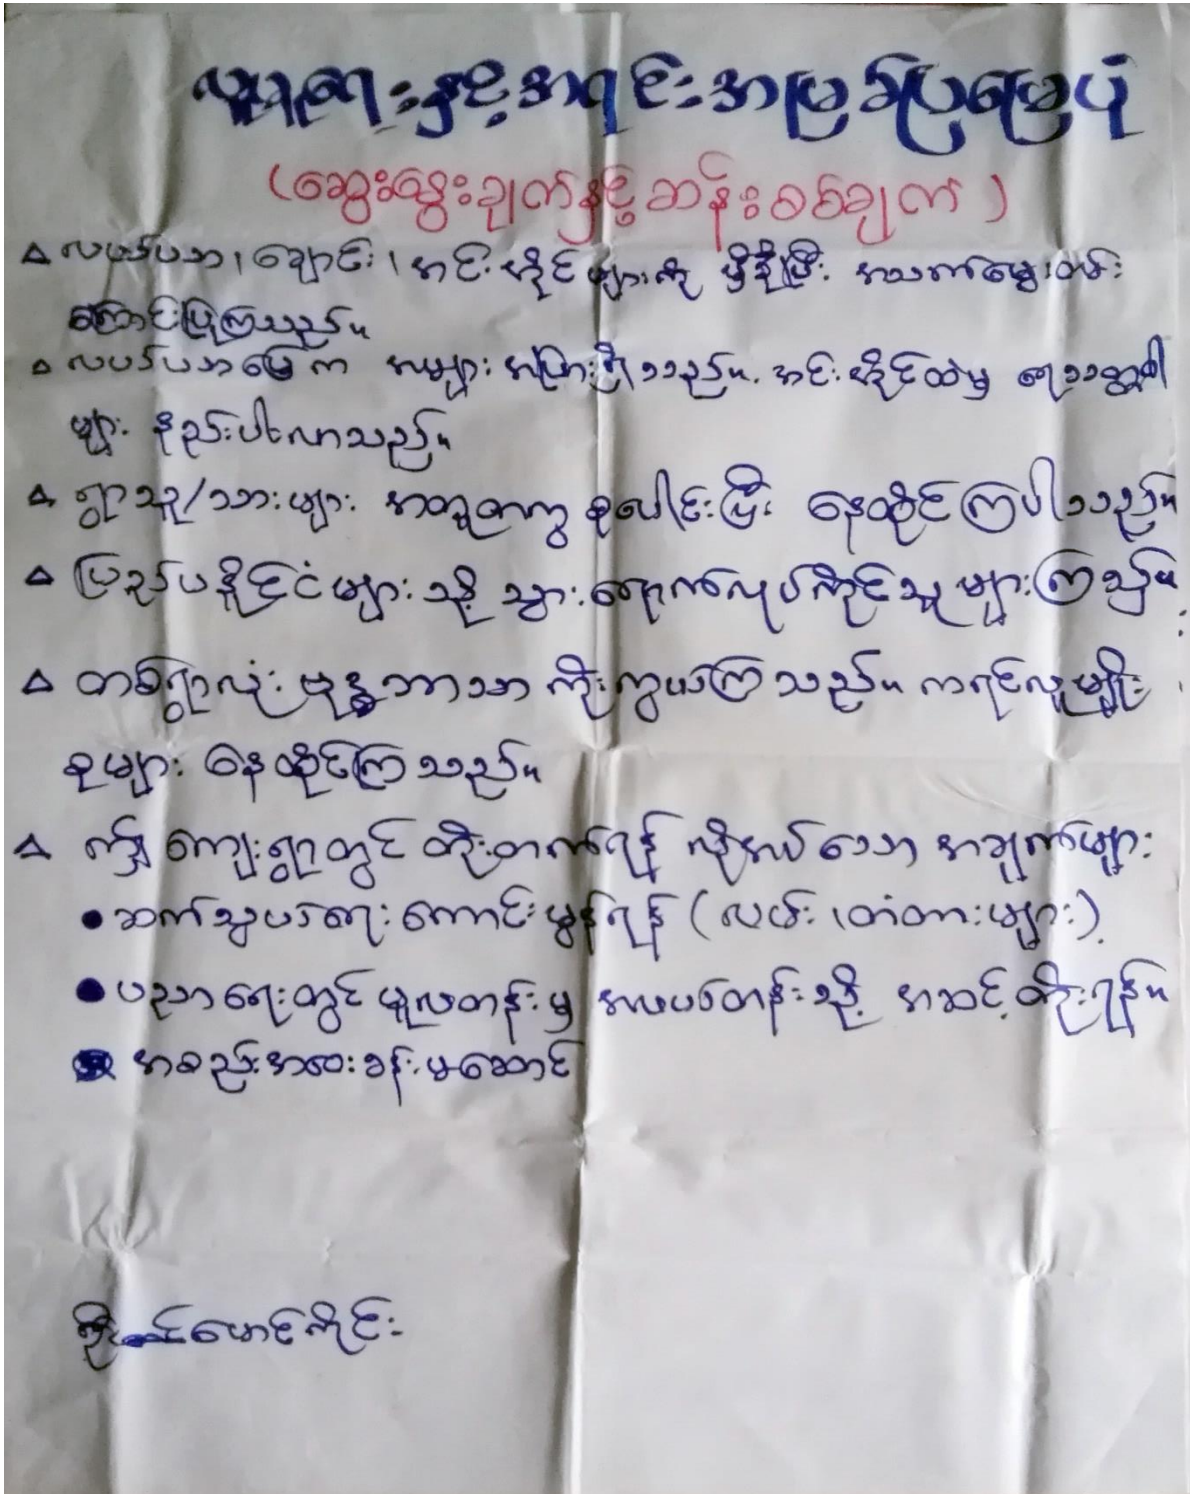 လူမှုရေးနှင့်အရင်းအမြစ်ပြမြေပုံ
(ဆွေးနွေးချက်နှင့်ဆန်းစစ်ချက်)
လယ်ယာ၊ ချောင်း၊ အင်းအိုင်များကို မှီခိုပြီး အသက်မွေးဝမ်း
ကြောင်းပြုကြသည်။
လယ်ယာမြေက အများအပြားရှိသည်။ အင်းအိုင်ထဲမှ ရေသတ္တဝါ
များ နည်းပါးလာသည်။
ရွာသူ/သားများ အတူတကွ စုပေါင်းပြီး နေထိုင်ကြပါသည်။
ပြည်ပနိုင်ငံများသို့ သွားရောက်လုပ်ကိုင်သူများကြသည်။
တစ်ရွာလုံး ဗုဒ္ဓဘာသာ ကိုးကွယ်ကြသည်။ ကရင်လူမျိုး
စုများ နေထိုင်ကြသည်။
ဤကျေးရွာတွင် တိုးတက်ရန် လိုအပ်သော အချက်များ
ဆက်သွယ်ရေးကောင်းမွန်ရန် (လမ်း၊ တံတားများ)
ပညာရေးတွင် မူလတန်းမှ အလယ်တန်းသို့ အဆင့်တိုးရန်။
အစည်းအဝေးခန်းမဆောင်
မောင်ကိုင်း